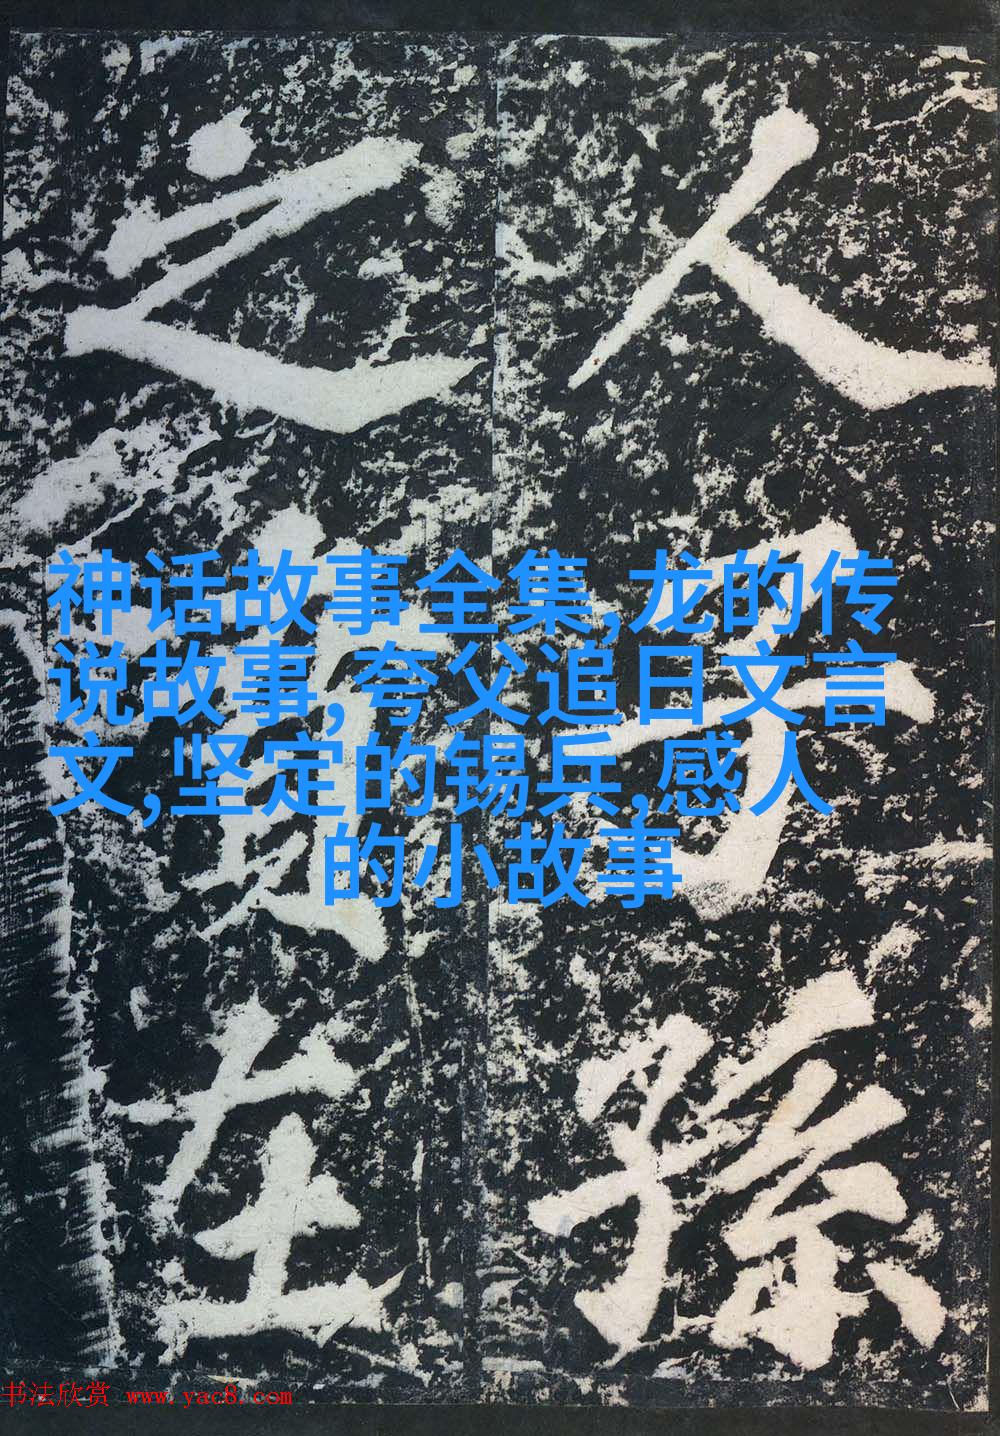 人子孫
之在
神话故事全集,龙的传
说故事,夸父追日文言
文,坚定的锡兵,感人
的小故事
书法欣赏 www.yac8.com